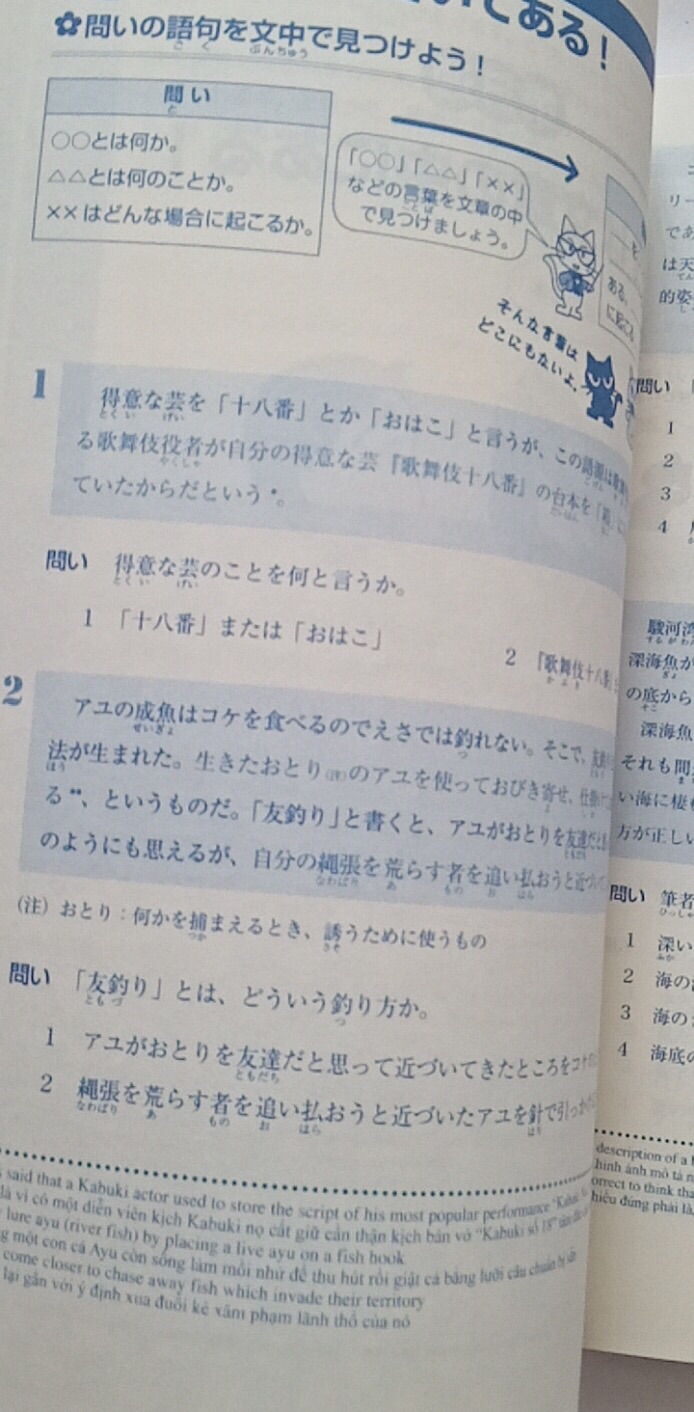 てある！
✿問いの語句を文中で見つけよう！
問い
○○とは何か。
△△とは何のことか。
××はどんな場合に起こるか。
「○○」「△△」「××」
などの言葉を文章の中
で見つけましょう。
そんな言葉は
どこにもないよ。
を
ある。
に起こる
1
得意な芸を「十八番」とか「おはこ」と言うが、この語源は
る歌舞伎役者が自分の得意な芸『歌舞伎十八番』の台本を「箱」に
ていたからだという*。
問い 得意な芸のことを何と言うか。
1 「十八番」または「おはこ」
2 『歌舞伎十八番』
2
アユの成魚はコケを食べるのでえさでは釣れない。そこで、友
法が生まれた。生きたおとり(注)のアユを使っておびき寄せ、仕掛
る**、というものだ。「友釣り」と書くと、アユがおとりを友達だと
のようにも思えるが、自分の縄張を荒らす者を追い払おうと近づ
(注) おとり：何かを捕まえるとき、誘うために使うもの
問い 「友釣り」とは、どういう釣り方か。
1 アユがおとりを友達だと思って近づいてきたところをコケ
2 縄張を荒らす者を追い払おうと近づいたアユを針で引っか
said that a Kabuki actor used to store the script of his most popular performance "Kabuki
là vì có một diễn viên kịch Kabuki nọ cất giữ cẩn thận kịch bản vở "Kabuki số 18"
lure ayu (river fish) by placing a live ayu on a fish hook
một con cá Ayu còn sống làm mồi nhử để thu hút rồi giật cá bằng lưỡi câu chuẩn bị sẵn
come closer to chase away fish which invade their territory
lại gần với ý định xua đuổi kẻ xâm phạm lãnh thổ của nó
リー
であ
は天
的姿
問い
1
2
3
4
駿河湾
深海魚が
の底から
深海魚
それも間
い海に棲
方が正しい
問い 筆者
1 深い
2 海の
3 海の
4 海底の
description of a
hình ảnh mô tả
orrect to think tha
hiểu đúng phải là